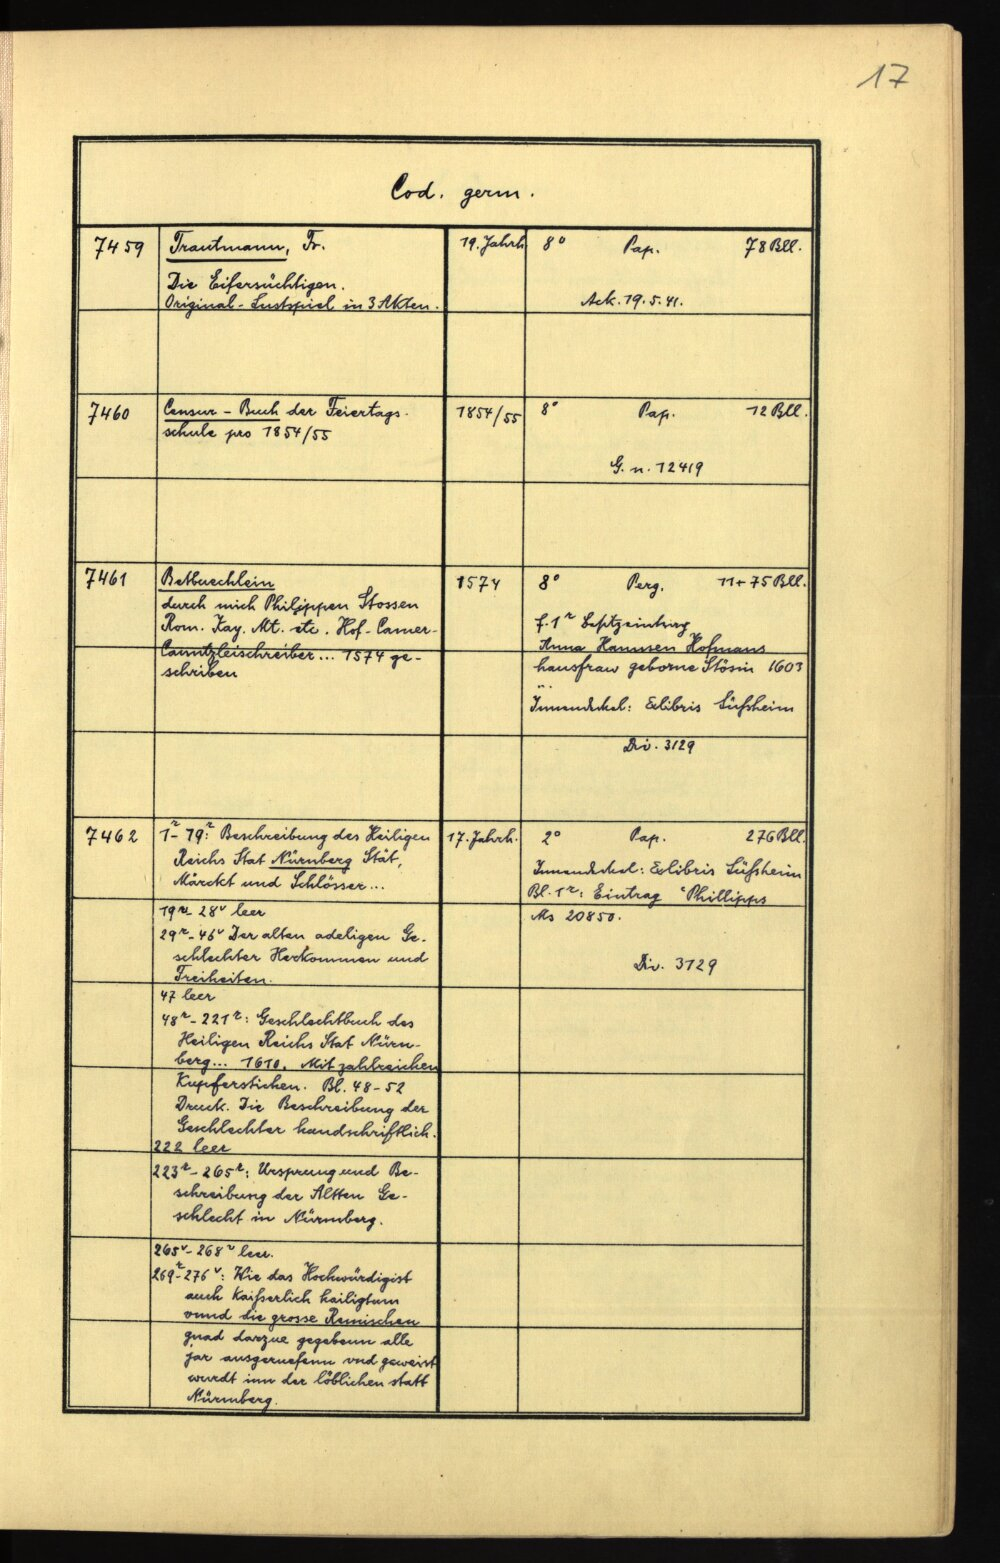 17
Cod. germ.
7459 Trautmann, Fr. 19. Jahrh. 8° Pap. 78 Bll.
Die Eifersüchtigen.
Original-Lustspiel in 3 Akten. Ack. 19.5.41.
7460 Censur-Buch der Feiertags- 1854/55 8° Pap. 12 Bll.
schule pro 1854/55
G. n. 12419
7461 Betbuechlein 1574 8° Perg. 11+75 Bll.
durch mich Philippen Stossen
Rom. Kay. Mt. etc. Hof-Camer-
Canntzleischreiber... 1574 ge-
schriben
f. 1r Besitzeintrag
Anna Hannsen Hofmans
hausfraw geborne Stösin 1603
Innendeckel: Exlibris Süßheim
Div. 3129
7462 1r-19r: Beschreibung des Heiligen 17. Jahrh. 2° Pap. 276 Bll.
Reichs Stat Nürnberg Stät,
Märckt und Schlösser...
19v-28v leer
29r-46v Der alten adeligen Ge-
schlechter Herkommen und
Freiheiten.
47 leer
48r-221r: Geschlechtbuch des
Heiligen Reichs Stat Nürn-
berg... 1610. Mit zahlreichen
Kupferstichen. Bl. 48-52
Druck. Die Beschreibung der
Geschlechter handschriftlich.
222 leer
223r-265r: Ursprung und Be-
schreibung der Altten Ge-
schlecht in Nürmberg.
265v-268v leer.
269r-276v: Wie das Hochwürdigist
auch Kaißerlich hailigtum
vnnd die grosse Remischen
gnad darzue gegebenn alle
jar ausgeruefenn vnd geweist
wurdt inn der löblichen statt
Nürmberg.
Innendeckel: Exlibris Süßheim
Bl. 1r: Eintrag "Phillipps
Ms 20850.
Div. 3129